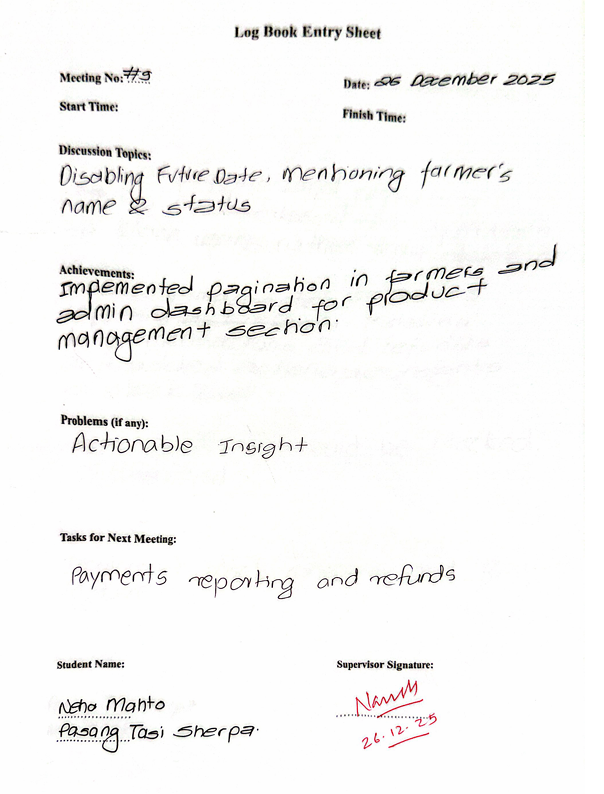 Log Book Entry Sheet
Meeting No: #9
Date: 26 December 2025
Start Time:
Finish Time:
Discussion Topics:
Disabling Future Date, mentioning farmer's
name & status
Achievements:
Impemented pagination in farmers and
admin dashboard for product
management section.
Problems (if any):
Actionable Insight
Tasks for Next Meeting:
Payments reporting and refunds
Student Name:
Supervisor Signature:
Neha Mahto
Pasang Tasi Sherpa.
26.12.25